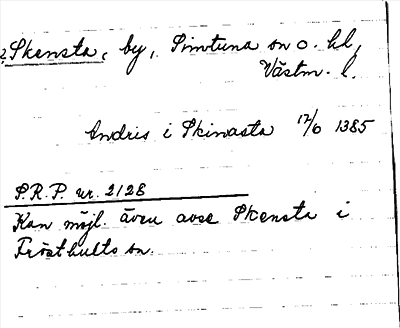 ? Skensta, by, Simtuna sn o. hd,
Västm. l.
Andris i Skinasta 12/6 1385
S.R.P. nr. 2128
Kan möjl. även avse Skensta i
Frösthults sn.